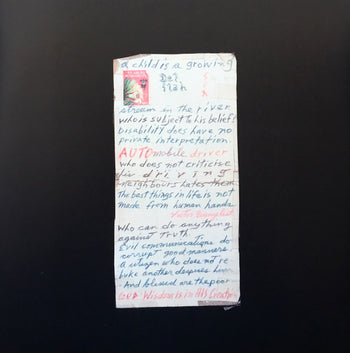 A child is a growing
stream in the river
who is subject to his belief
Disability does have no
private interpretation.
AUTOmobile driver
who does not criticise
his driving
neighbours hates them
the best things in life is not
made from human hands.
Who can do anything
against Truth.
Evil communications do
corrupt good manners
a citizen who does not re
buke another despises him
And blessed are the poor
GOD Wisdom is in His